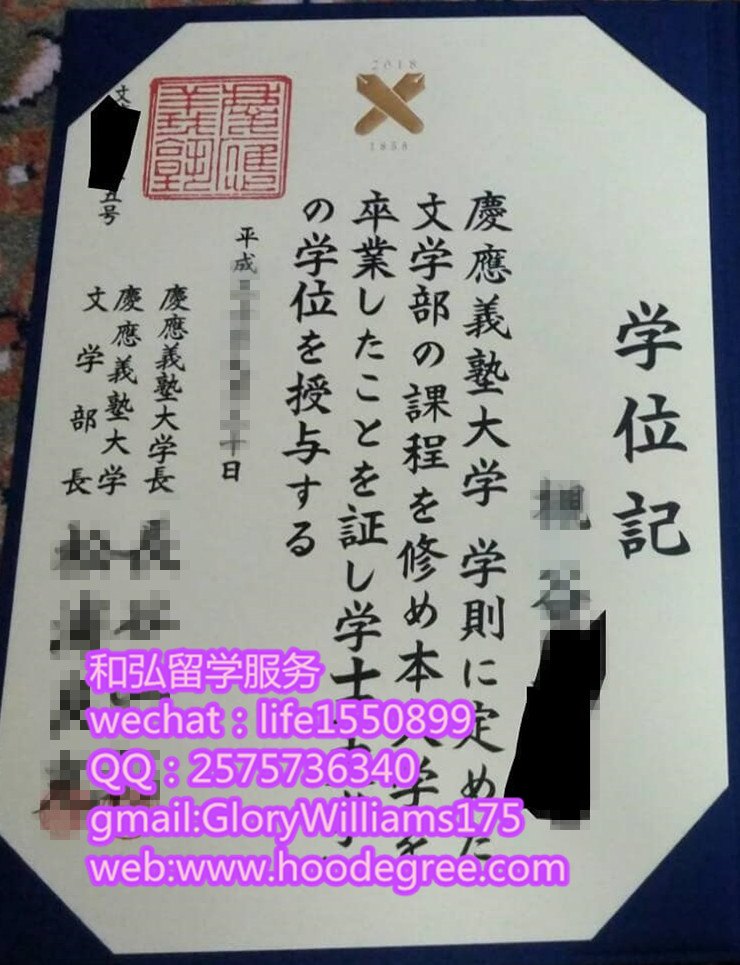 学位記
慶應義塾大学 学則に定めた
文学部の課程を修め本大学を
卒業したことを証し学士
の学位を授与する
平成
日
慶應義塾大学長
慶應義塾大学
文学部長
号
慶應義塾
2018
1858
和弘留学服务
wechat：life1550899
QQ：2575736340
gmail:GloryWilliams175
web:www.hoodegree.com